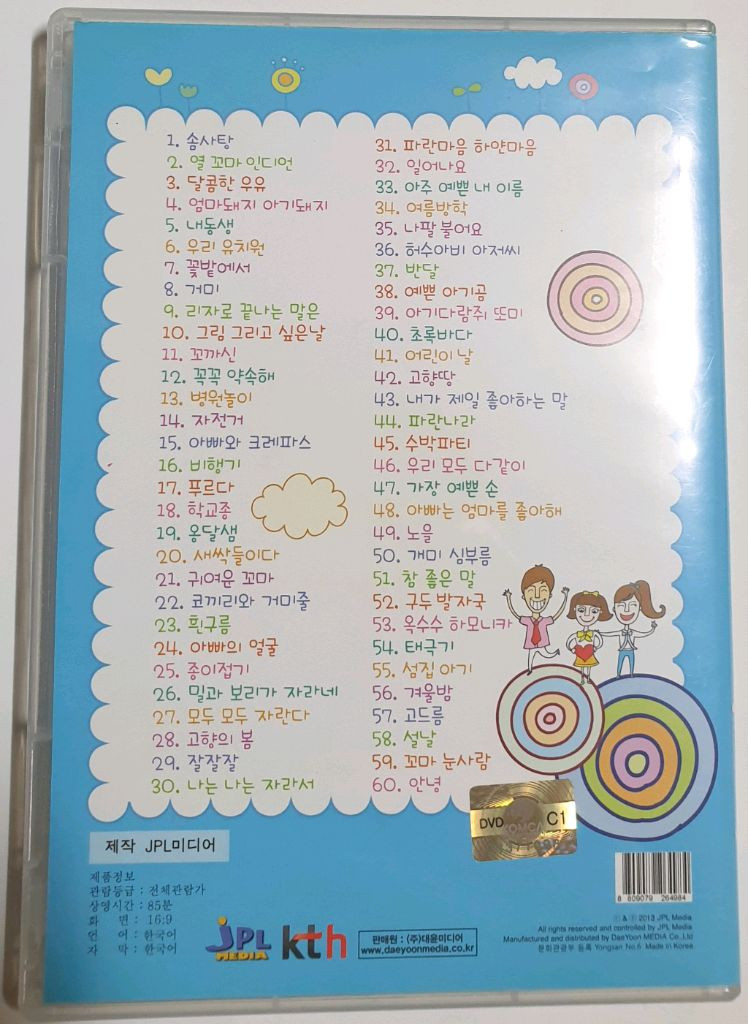 1. 솜사탕
2. 열 꼬마 인디언
3. 달콤한 우유
4. 엄마돼지 아기돼지
5. 내동생
6. 우리 유치원
7. 꽃밭에서
8. 거미
9. 리자로 끝나는 말은
10. 그림 그리고 싶은날
11. 꼬까신
12. 꼭꼭 약속해
13. 병원놀이
14. 자전거
15. 아빠와 크레파스
16. 비행기
17. 푸르다
18. 학교종
19. 옹달샘
20. 새싹들이다
21. 귀여운 꼬마
22. 코끼리와 거미줄
23. 흰구름
24. 아빠의 얼굴
25. 종이접기
26. 밀과 보리가 자라네
27. 모두 모두 자란다
28. 고향의 봄
29. 잘잘잘
30. 나는 나는 자라서
31. 파란마음 하얀마음
32. 일어나요
33. 아주 예쁜 내 이름
34. 여름방학
35. 나팔 불어요
36. 허수아비 아저씨
37. 반달
38. 예쁜 아기곰
39. 아기다람쥐 또미
40. 초록바다
41. 어린이 날
42. 고향땅
43. 내가 제일 좋아하는 말
44. 파란나라
45. 수박파티
46. 우리 모두 다같이
47. 가장 예쁜 손
48. 아빠는 엄마를 좋아해
49. 노을
50. 개미 심부름
51. 참 좋은 말
52. 구두 발자국
53. 옥수수 하모니카
54. 태극기
55. 섬집 아기
56. 겨울밤
57. 고드름
58. 설날
59. 꼬마 눈사람
60. 안녕
DVD KOMCA C1
제작 JPL미디어
제품정보
관람등급 : 전체관람가
상영시간 : 85분
화 면 : 16:9
언 어 : 한국어
자 막 : 한국어
JPL
MEDIA
kth
판매원 : (주)대윤미디어
www.daeyoonmedia.co.kr
8 809079 264984
ⓒ & ⓟ 2013 JPL Media
All rights reserved and controlled by JPL Media
Manufactured and distributed by DaeYoon MEDIA Co.,Ltd
문화관광부 등록 Yongsan No.6 Made in Korea